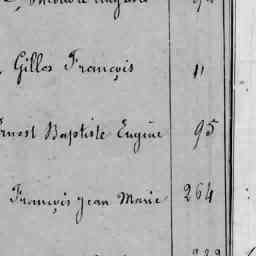 Gilles François 11
Ernest Baptiste Eugène 95
François Jean Marie 264